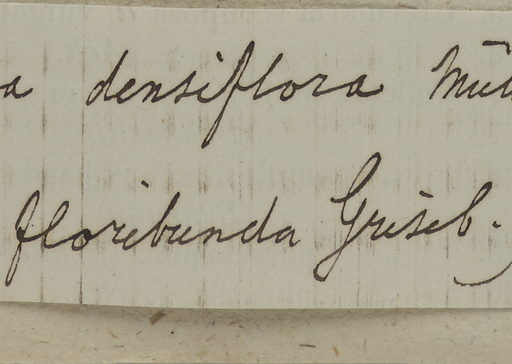 a densiflora Mü
floribunda Griseb.